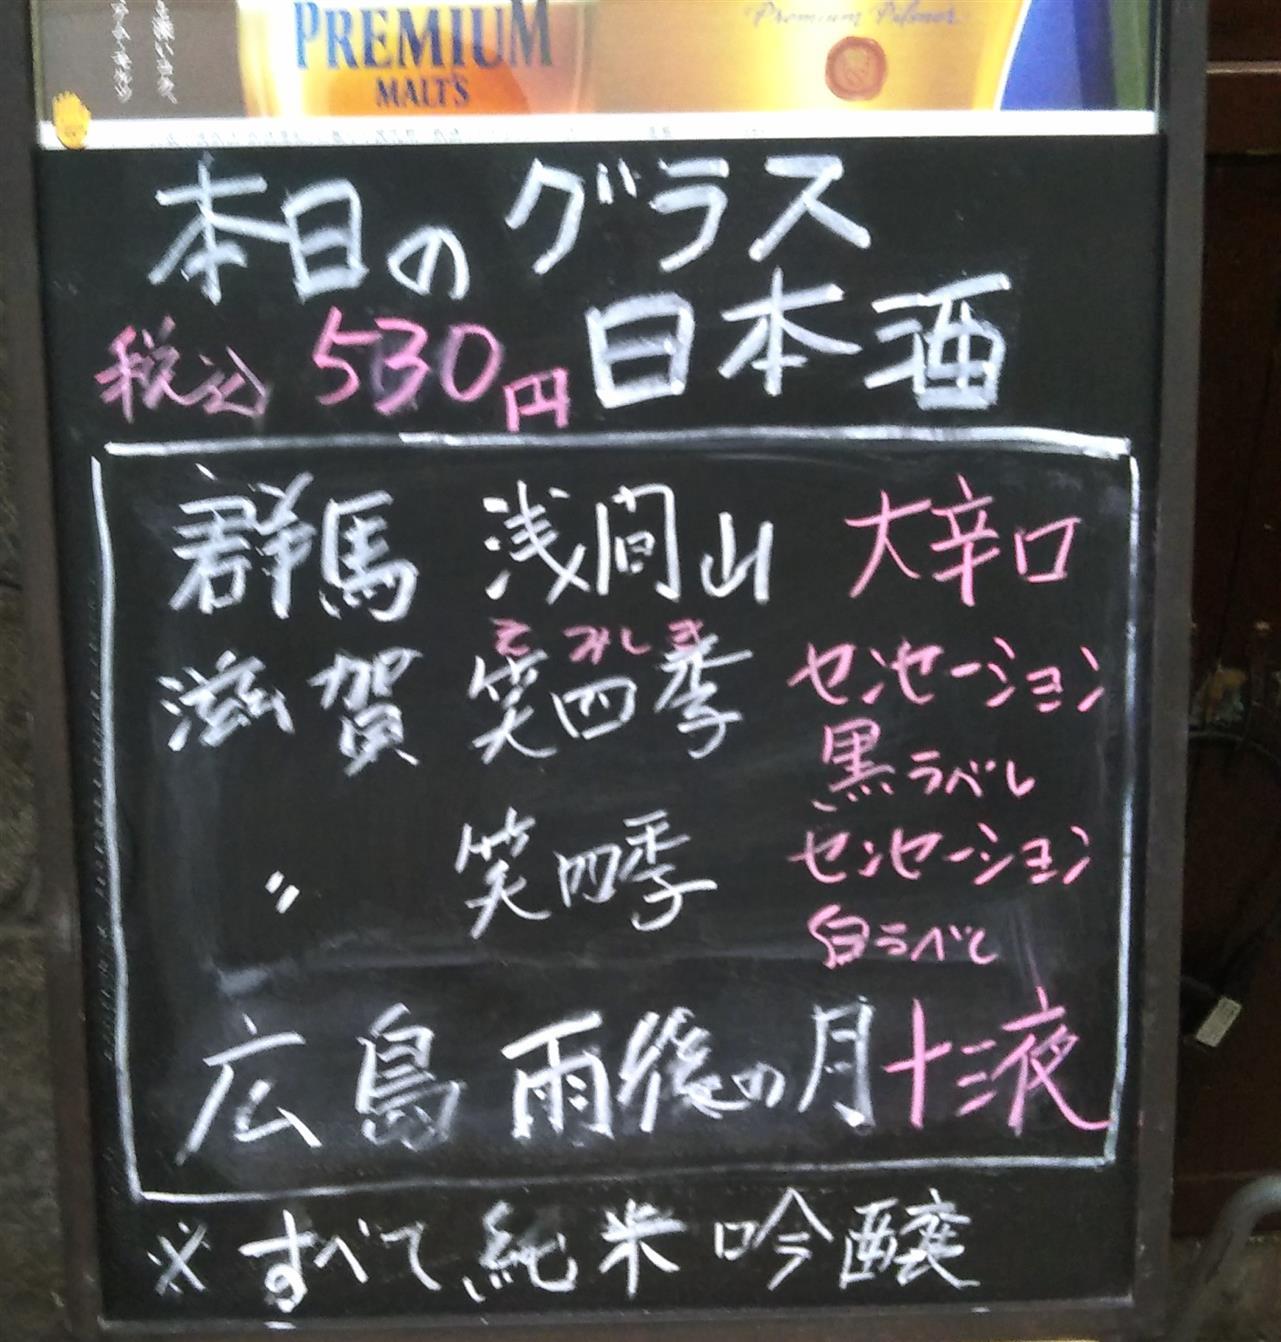 PREMIUM
MALT'S
Premium Pilsner
本日のグラス
税込 530円 日本酒
群馬 浅間山 大辛口
えみしき
滋賀 笑四季 センセーション
黒ラベル
〃 笑四季 センセーション
白ラベル
広島 雨後の月 十三液
※すべて純米吟醸